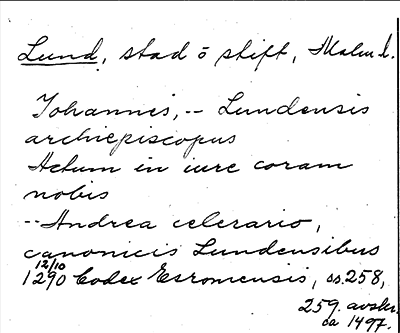 Lund, stad o stift, Malm l.
Johannes, -- Lundensis
archiepiscopus
Actum in iure coram
nobis
-- Andrea celerario,
canonicis Lundensibus
12/10
1290 Codex Esromensis, ss. 258,
259. avskr.
ca 1497.